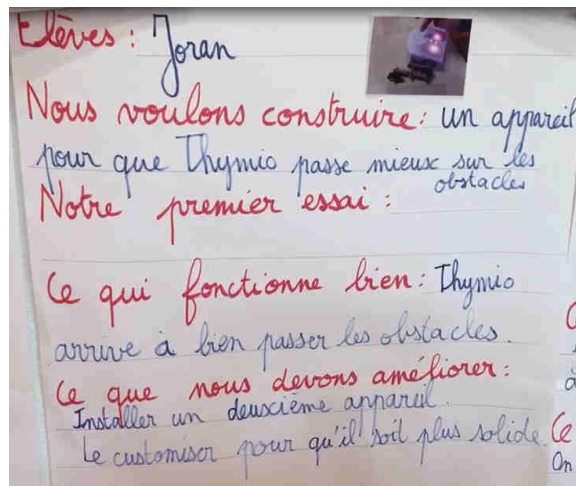 Elèves : Joran
Nous voulons construire : un appareil
pour que Thymio passe mieux sur les
obstacles
Notre premier essai :
Ce qui fonctionne bien : Thymio
arrive à bien passer les obstacles.
Ce que nous devons améliorer :
Installer un deuxième appareil.
Le customiser pour qu'il soit plus solide
Ce
On